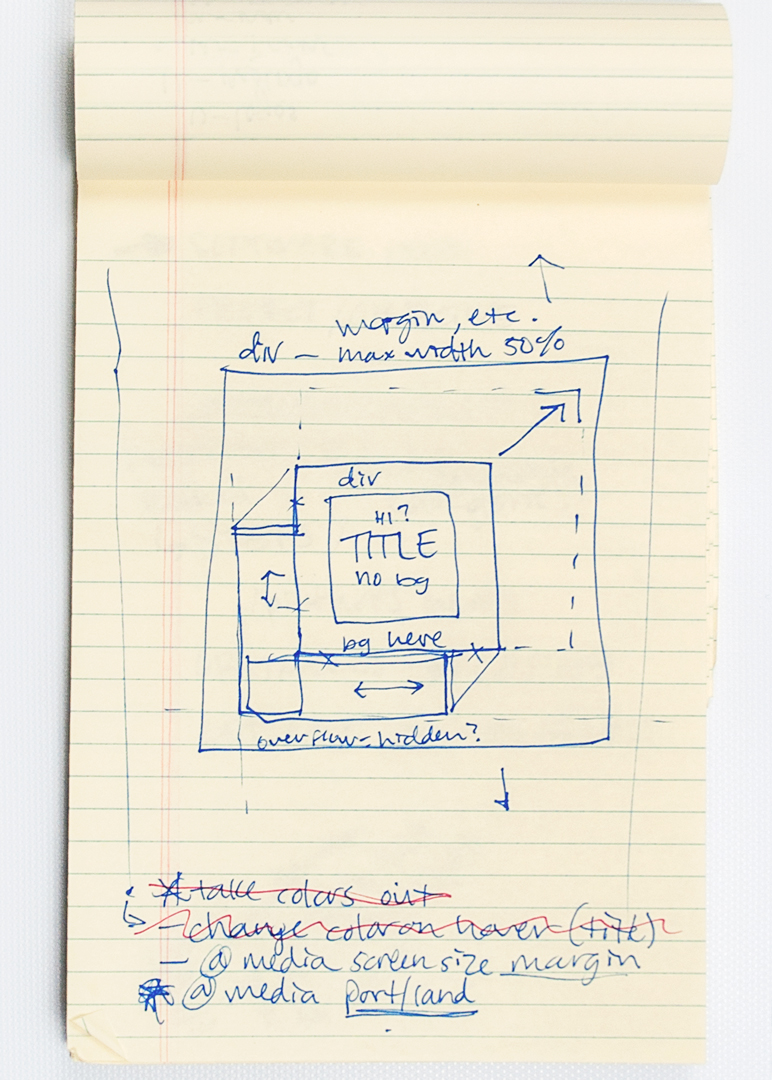 margin, etc.
div — max width 50%
div
H1?
TITLE
no bg
bg here
overflow-hidden?
* take colors out
- change color on hover (title)
- @ media screen size margin
* @ media port/land